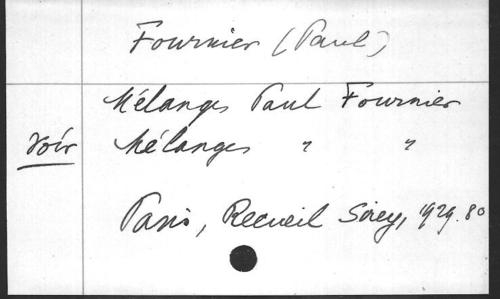 Fournier (Paul)
Mélanges Paul Fournier
voir Mélanges " "
Paris, Recueil Sirey, 1929. 8º